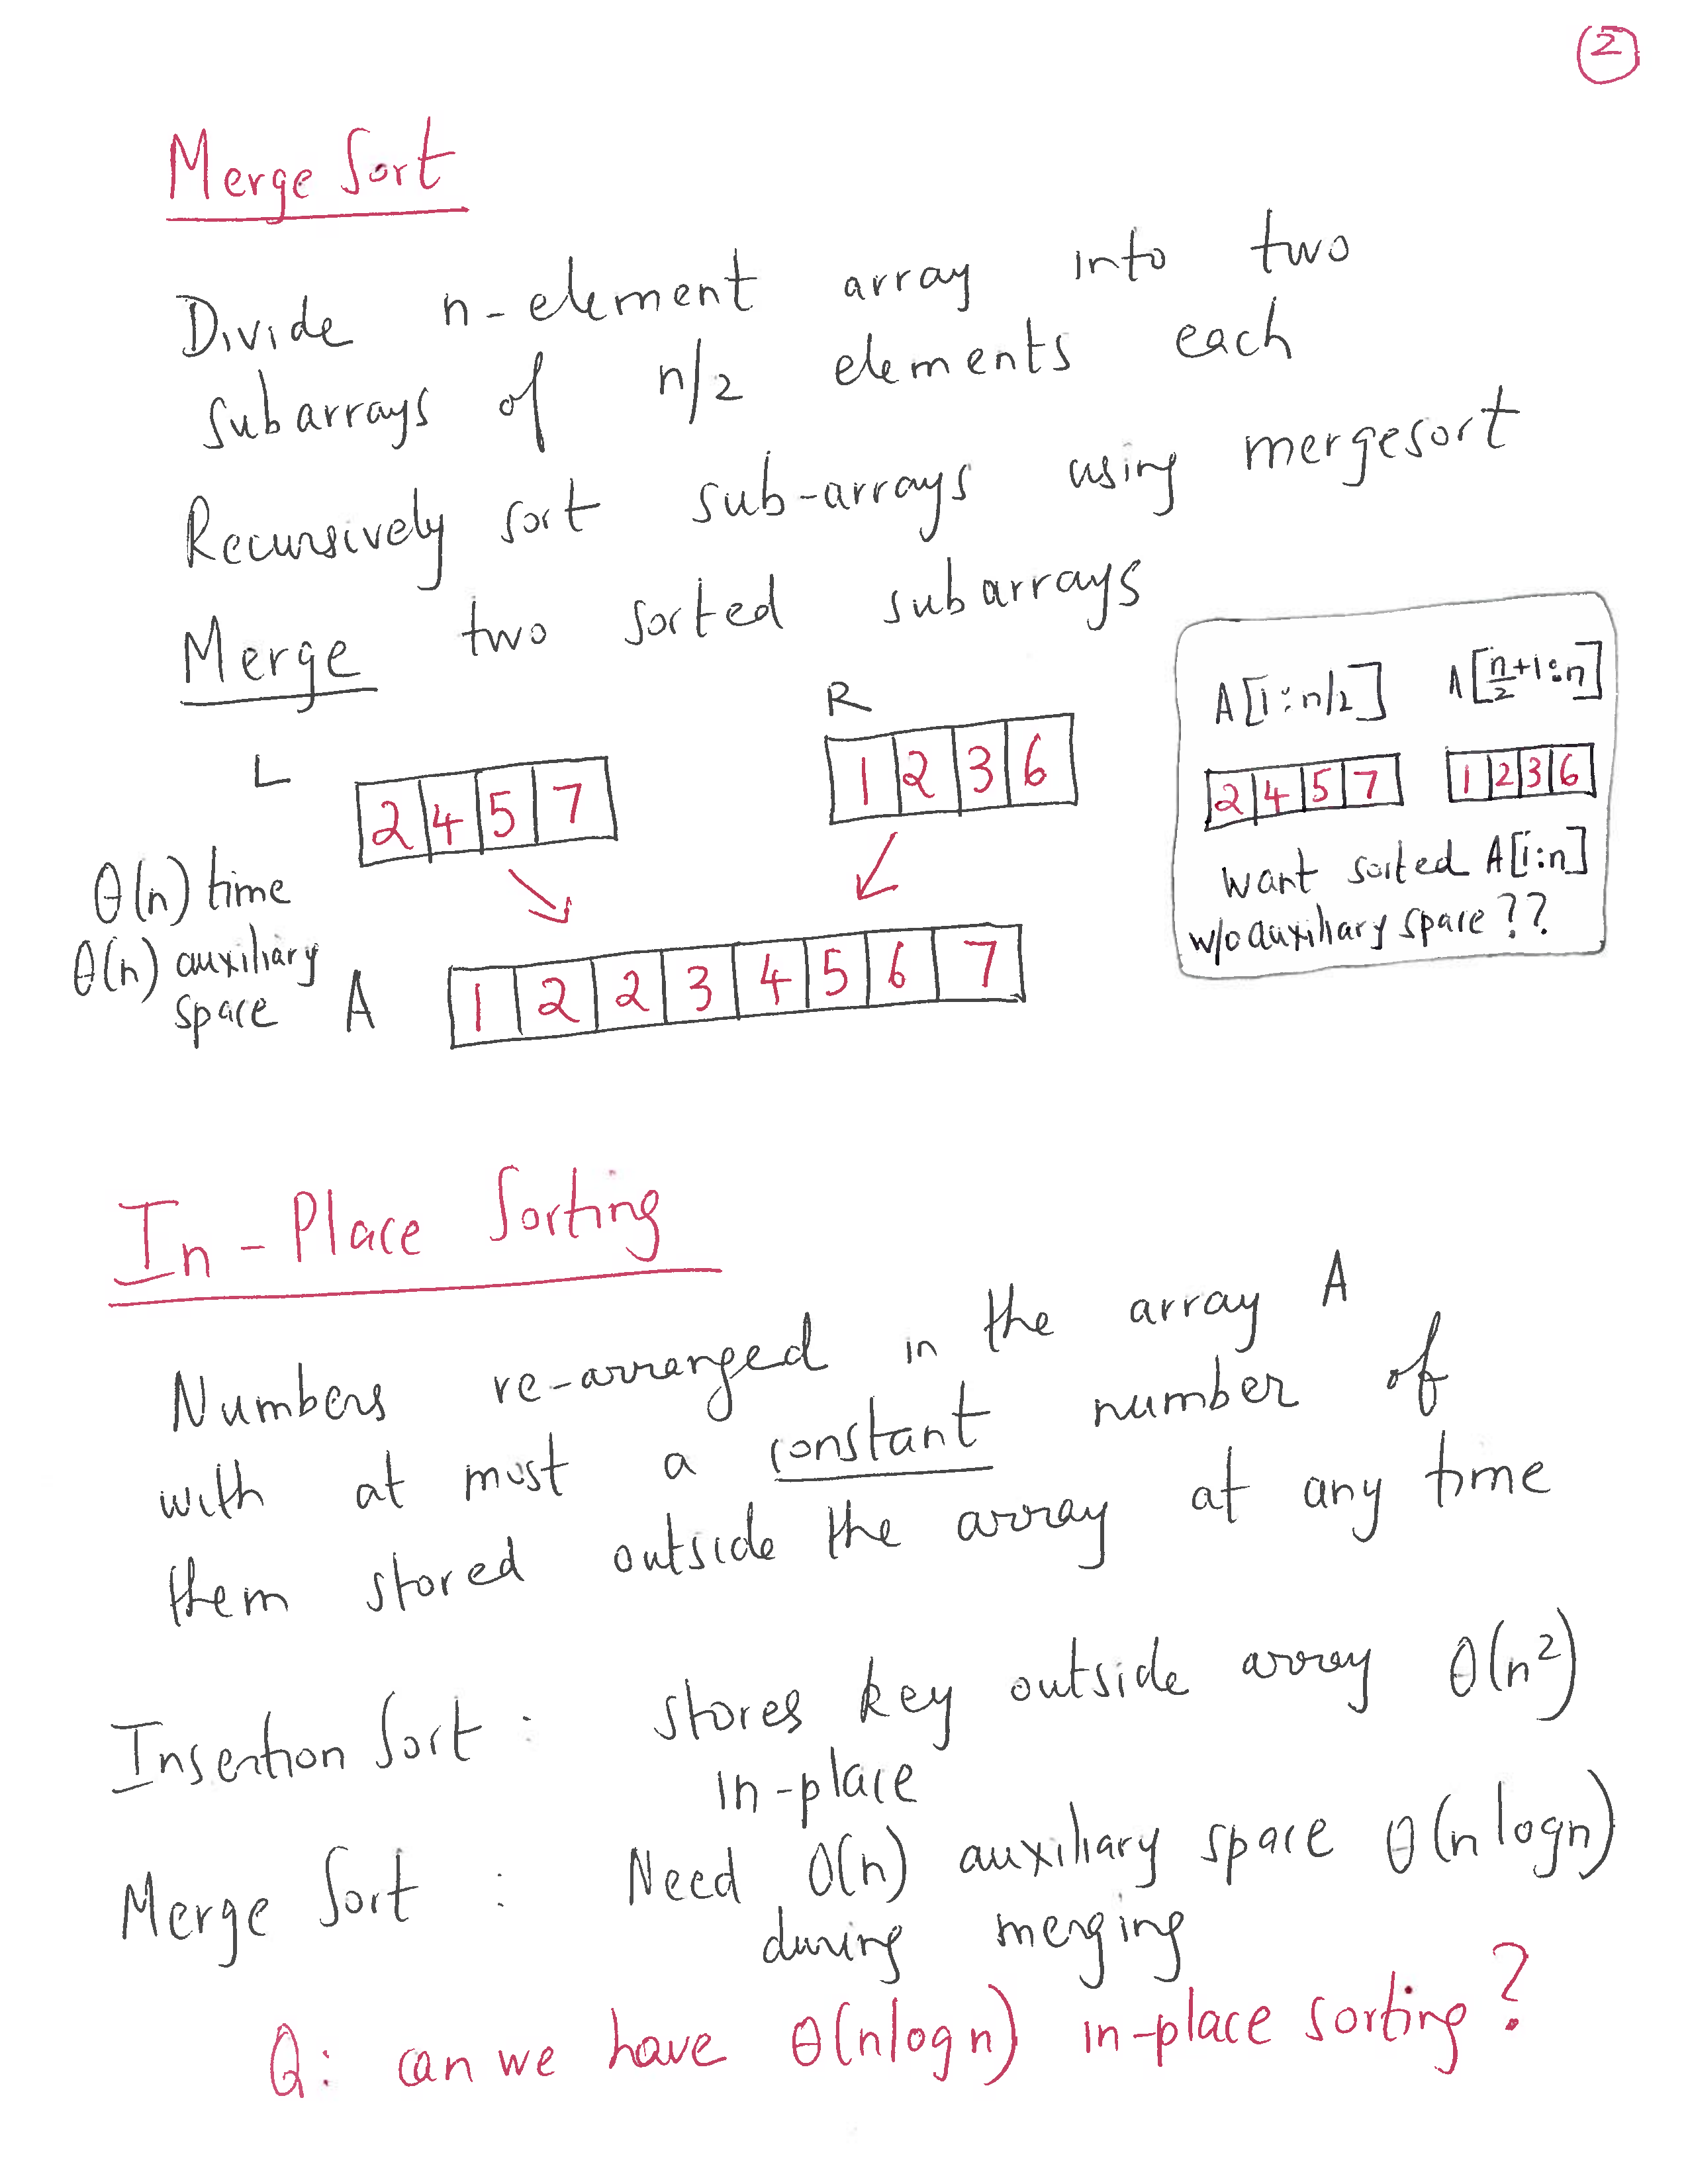 2
Merge Sort
Divide n-element array into two
subarrays of n/2 elements each
Recursively sort sub-arrays using mergesort
Merge two sorted subarrays
L
2 4 5 7
R
1 2 3 6
θ(n) time
θ(n) auxiliary
space
A
1 2 2 3 4 5 6 7
A[1:n/2] A[n/2+1:n]
2 4 5 7 1 2 3 6
want sorted A[1:n]
w/o auxiliary space??
In-Place Sorting
Numbers re-arranged in the array A
with at most a constant number of
them stored outside the array at any time
Insertion Sort: stores key outside array θ(n²)
in-place
Merge Sort: Need O(n) auxiliary space θ(n logn)
during merging
Q: can we have θ(nlogn) in-place sorting?